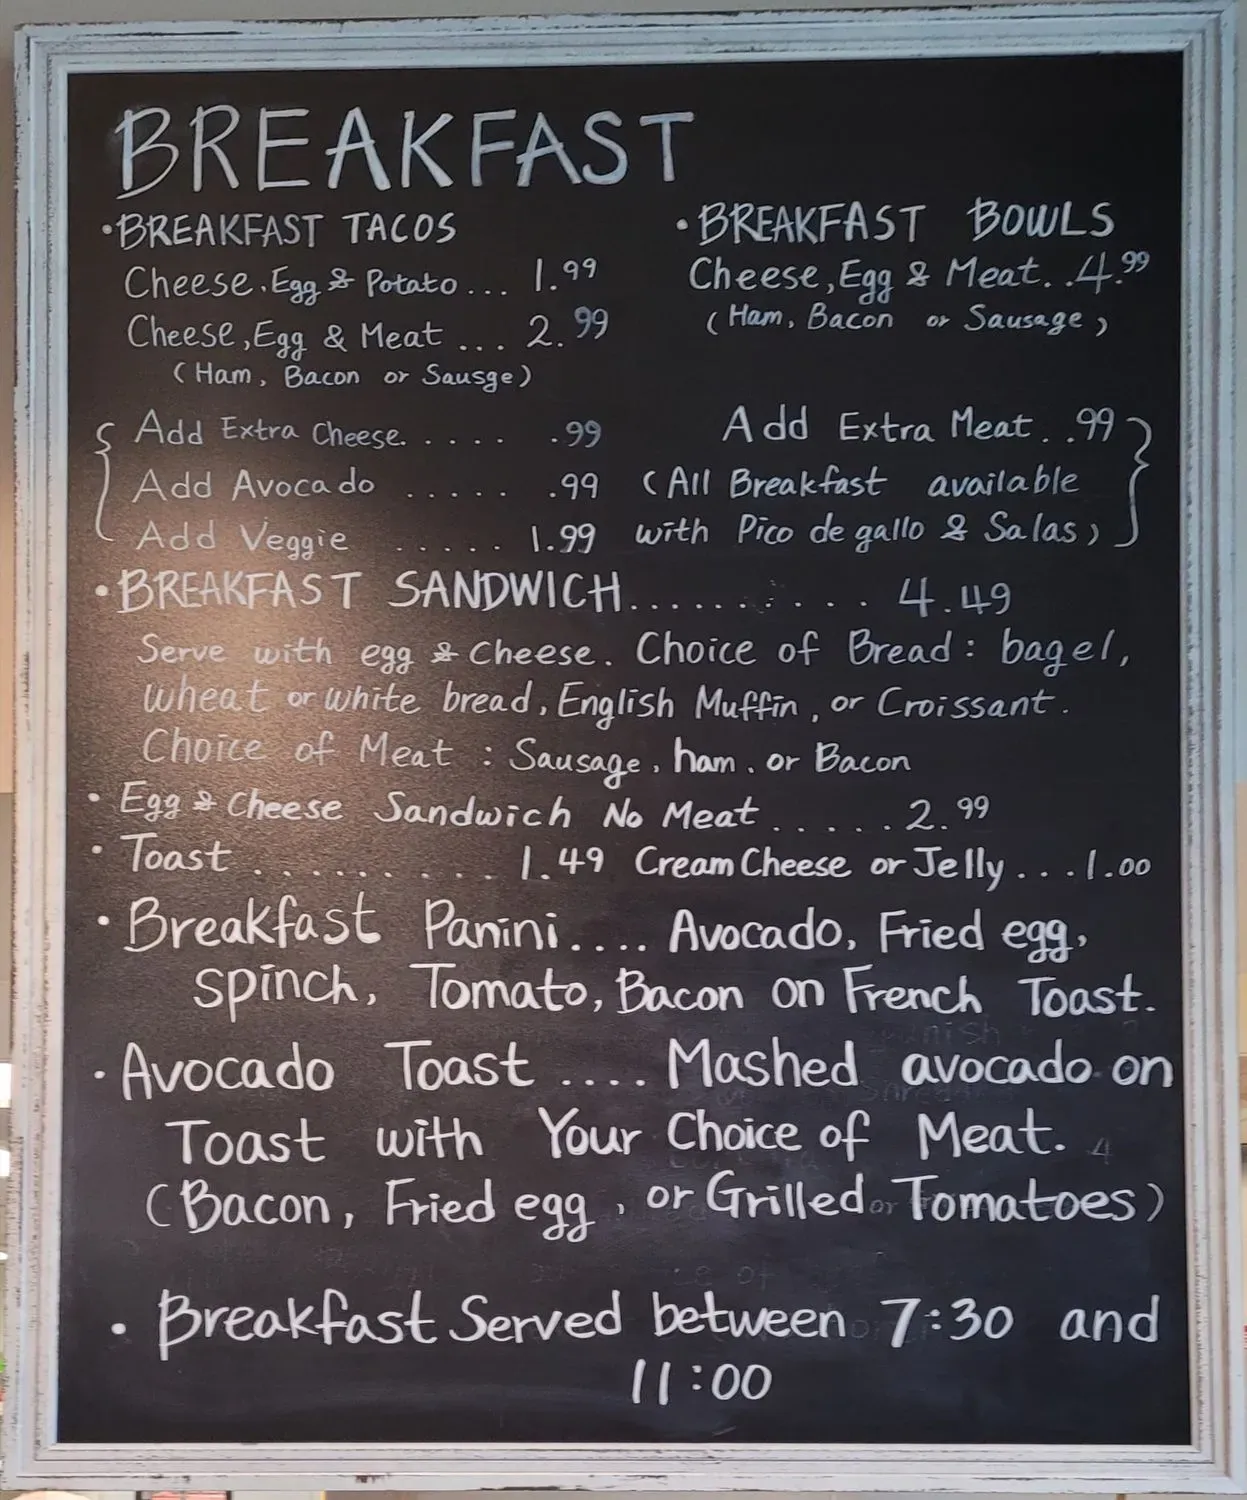 BREAKFAST
• BREAKFAST TACOS
Cheese, Egg & Potato... 1.99
Cheese, Egg & Meat ... 2.99
(Ham, Bacon or Sausge)
• BREAKFAST BOWLS
Cheese, Egg & Meat...4.99
(Ham, Bacon or Sausage)
{ Add Extra Cheese..... .99
Add Avocado ..... .99
Add Veggie ..... 1.99
Add Extra Meat...99 }
(All Breakfast available
with Pico de gallo & Salas)
• BREAKFAST SANDWICH.......... 4.49
Serve with egg & cheese. Choice of Bread: bagel,
wheat or white bread, English Muffin, or Croissant.
Choice of Meat : Sausage, ham, or Bacon
• Egg & Cheese Sandwich No Meat .....2.99
• Toast ......... 1.49 Cream Cheese or Jelly...1.00
• Breakfast Panini.... Avocado, Fried egg,
spinch, Tomato, Bacon on French Toast.
• Avocado Toast .... Mashed avocado on
Toast with Your Choice of Meat.
(Bacon, Fried egg, or Grilled Tomatoes)
• Breakfast Served between 7:30 and
11:00